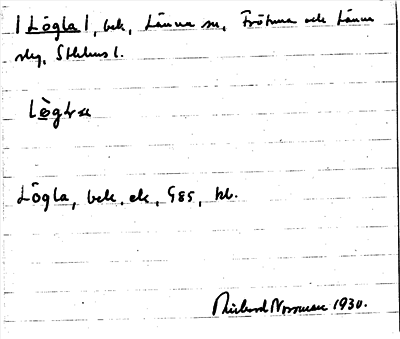 | Lögla |, bek, Länna sn, Frötuna och Länna
slg, Sthlms l.
Lògla
Lögla, bek, ek, G85, kb.
Rickard Norrman 1930.